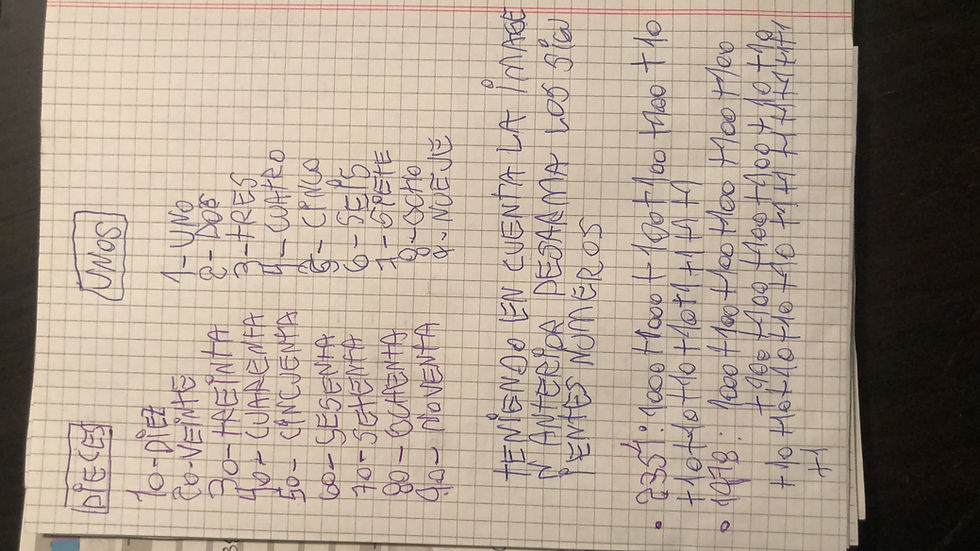 DIECES
10-DIEZ
20-VEINTE
30-TREINTA
40- CUARENTA
50- CINCUENTA
60- SESENTA
70- SETENTA
80- OCHENTA
90- NOVENTA
UNOS
1-UNO
2-DOS
3-TRES
4-CUATRO
5-CINCO
6-SEIS
7-SIETE
8-OCHO
9-NUEVE
TENIENDO EN CUENTA LA IMAGE
N ANTERIOR DESARMA LOS SIGU
IENTES NUMEROS
• 2354: 1000+1000+100+100+100+10
+10+10+10+10+1+1+1+1
• 1978: 1000+100+100+100+100+100
+100+100+100+100+10+10
+10+10+10+10+10+1+1+1+1+1+1+1
+1